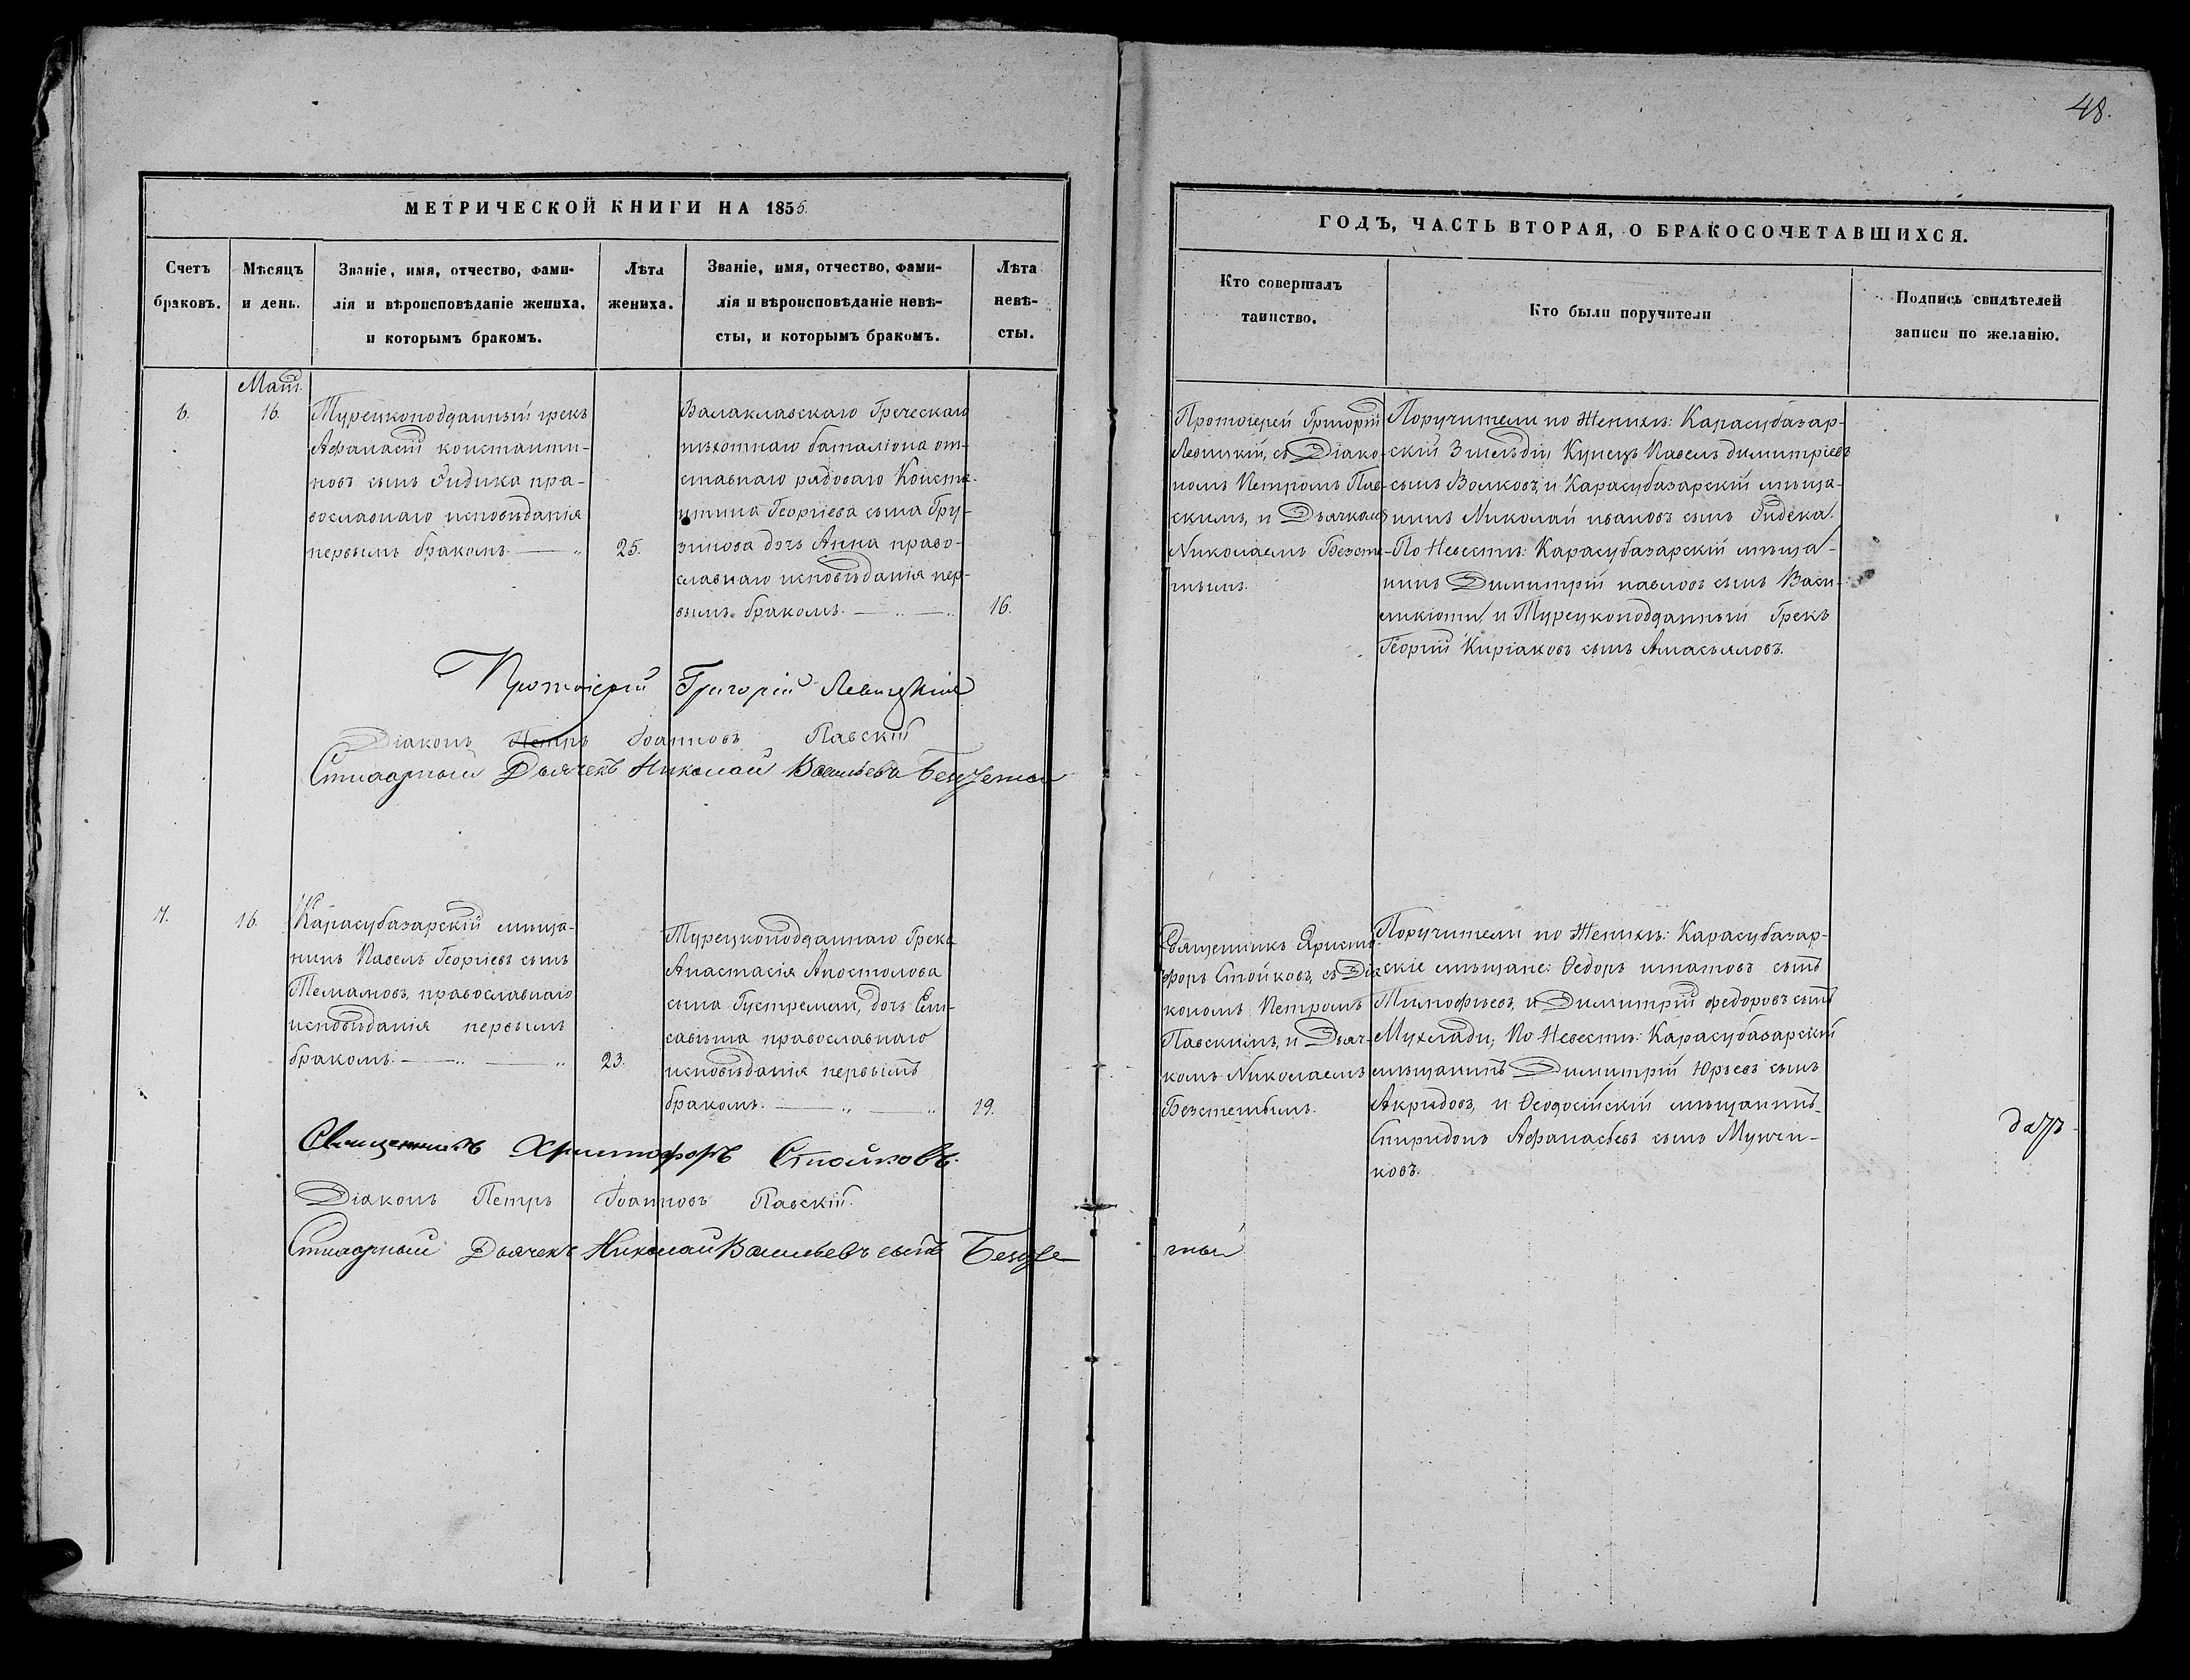 48.
МЕТРИЧЕСКОЙ КНИГИ НА 1856.
Счетъ
браковъ.
Мѣсяцъ
и день.
Званіе, имя, отчество, фами-
лія и вѣроисповѣданіе жениха,
и которымъ бракомъ.
Лѣта
жениха.
Званіе, имя, отчество, фами-
лія и вѣроисповѣданіе невѣ-
сты, и которымъ бракомъ.
Лѣта
невѣ-
сты.
ГОДЪ, ЧАСТЬ ВТОРАЯ, О БРАКОСОЧЕТАВШИХСЯ.
Кто совершалъ
таинство.
Кто были поручители
Подпись свидѣтелей
записи по желанію.
6.
Маія
16.
Турецкоподданный грекъ
Афанасій константи-
новъ сынъ Индика пра-
вославнаго исповѣданія
первымъ бракомъ.
25.
Балаклавскаго Греческаго
пѣхотнаго баталіона от-
ставнаго рядоваго Конста-
нтина Георгіева сына Гру-
зинова дочь Анна право-
славнаго исповѣданія пер-
вымъ бракомъ.
16.
Протоіерей Григорій
Левицкій, съ Діако-
номъ Петромъ Пав-
скимъ, и Дьячкомъ
Николаемъ Безсте-
тымъ.
Поручители по Женихѣ: Карасубазар-
скій 3 гильдіи Купецъ Павелъ димитріевъ
сынъ Волковъ, и Карасубазарскій мѣща-
нинъ Николай ивановъ сынъ Индека.
По Невестѣ: Карасубазарскій мѣща-
нинъ Димитрій павловъ сынъ Васи-
ликіоти, и Турецкоподданный Грекъ
Георгій Киріаковъ сынъ
Протоіерей Григорій Левицкій
Діаконъ Петръ Іоанновъ Павскій
Стихарный Дьячекъ Николай Васильевъ
7.
16.
Карасубазарскій мѣща-
нинъ Павелъ Георгіевъ сынъ
Темановъ, православнаго
исповѣданія первымъ
бракомъ.
23.
Турецкоподданнаго Грека
Анастасія Апостолова
сына Густремаи, дочь Ели-
савѣта православнаго
исповѣданія первымъ
бракомъ.
19.
Священникъ Христо-
форъ Стойковъ, съ Діа-
кономъ Петромъ
Павскимъ, и Дьяч-
комъ Николаемъ
Безстетымъ.
Поручители по Женихѣ: Карасубазар-
скіе мѣщане: Ѳедоръ игнатовъ сынъ
Тимофѣевъ, и Димитрій федоровъ сынъ
Мухлади; По Невестѣ: Карасубазарскій
мѣщанинъ Димитрій Юрьевъ сынъ
Акридовъ, и Ѳеодосійскій мѣщанинъ
Спиридонъ Афанасьевъ сынъ Мунчи-
ковъ.
Священникъ Христофоръ Стойковъ.
Діаконъ Петръ Іоанновъ Павскій.
Стихарный Дьячекъ Николай Васильевъ сынъ